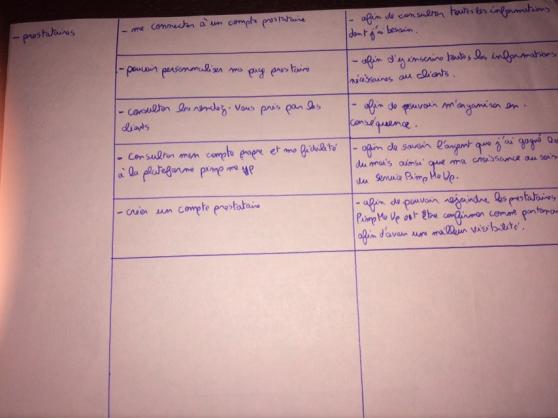 - prestataires
- me connecter à un compte prestataire
- afin de consulter toutes les informations
dont j'ai besoin.
- pouvoir personnaliser ma pay prestaire
- afin d'y inscrire toutes les informations
nécessaires au clients.
- consulter les rendez-vous pris par les
clients
- afin de pouvoir m'organiser en
conséquence.
- Consulter mon compte propre et ma fidélité
à la plateforme pimp me up
- afin de savoir l'argent que j'ai gagné
du mois ainsi que ma croissance au sein
du service Pimp Me Up.
- créer un compte prestataire
- afin de pouvoir rejoindre les prestataires
PimpMeUp et être confirmer comme
afin d'avoir une meilleur visibilité.